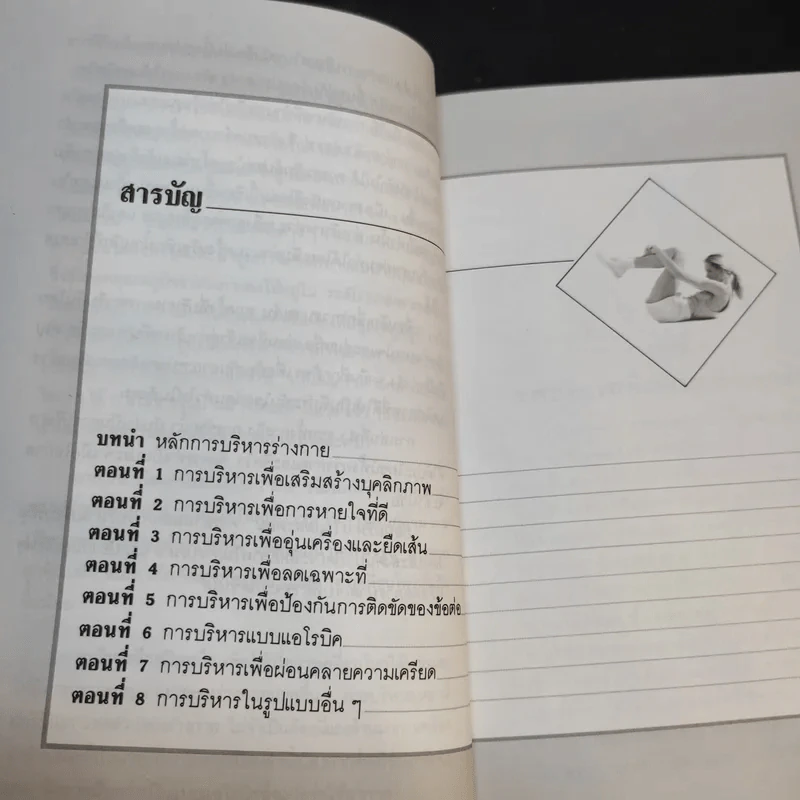 สารบัญ
บทนำ หลักการบริหารร่างกาย
ตอนที่ 1 การบริหารเพื่อเสริมสร้างบุคลิกภาพ
ตอนที่ 2 การบริหารเพื่อการหายใจที่ดี
ตอนที่ 3 การบริหารเพื่ออุ่นเครื่องและยืดเส้น
ตอนที่ 4 การบริหารเพื่อลดเฉพาะที่
ตอนที่ 5 การบริหารเพื่อป้องกันการติดขัดของข้อต่อ
ตอนที่ 6 การบริหารแบบแอโรบิค
ตอนที่ 7 การบริหารเพื่อผ่อนคลายความเครียด
ตอนที่ 8 การบริหารในรูปแบบอื่น ๆ